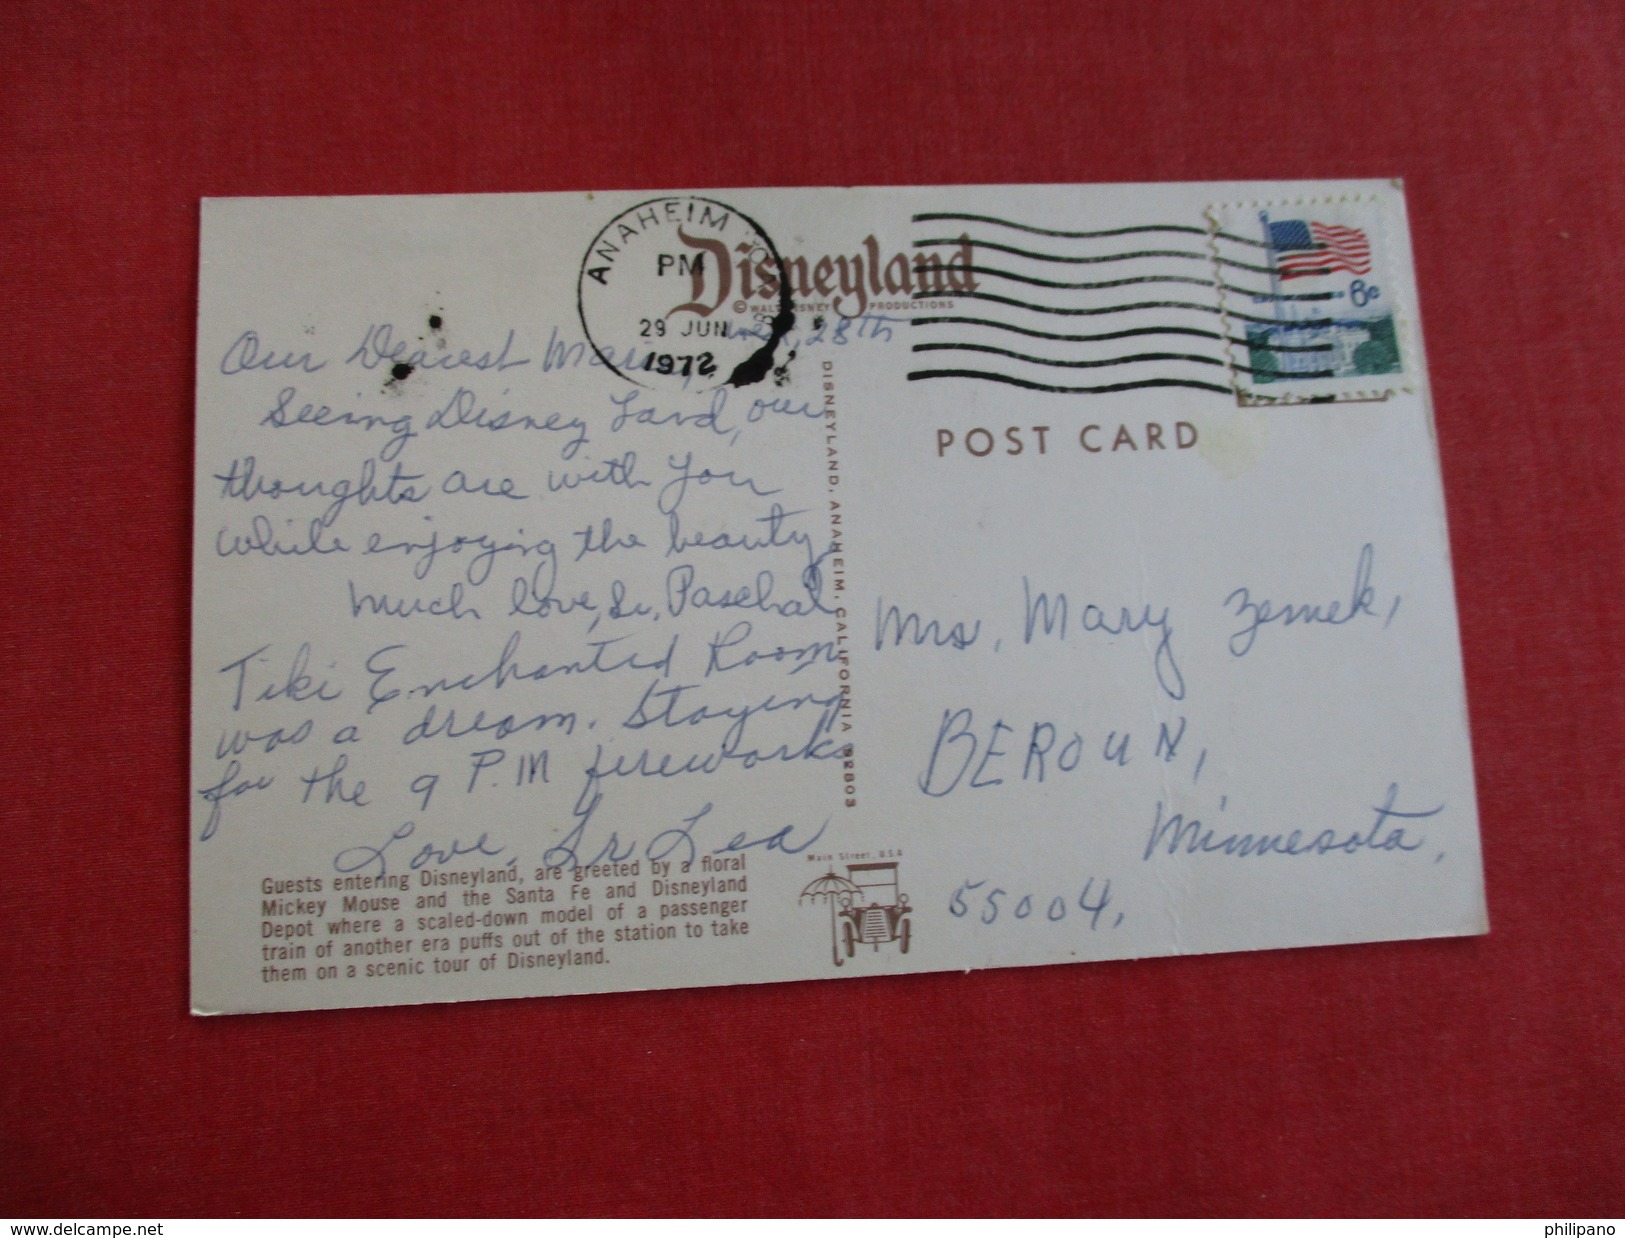 ANAHEIM
PM
29 JUN
1972
Disneyland
© WALT DISNEY PRODUCTIONS
8c
POST CARD
28th
Our Dearest
Seeing Disney Land, our
thoughts are with you
while enjoying the beauty
Much love, Sr. Paschal
Tiki Enchanted Room
was a dream. Staying
for the 9 P.M fireworks
Love, Sr Lea
DISNEYLAND, ANAHEIM, CALIFORNIA 92803
Mrs. Mary Zemek,
BEROUN,
Minnesota,
55004,
Guests entering Disneyland, are greeted by a floral
Mickey Mouse and the Santa Fe and Disneyland
Depot where a scaled-down model of a passenger
train of another era puffs out of the station to take
them on a scenic tour of Disneyland.
Main Street, U.S.A
www.delcampe.net
philipano